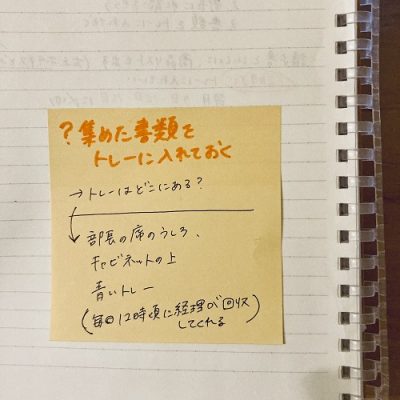 ?集めた書類を
トレーに入れておく
→トレーはどこにある?
部長の席のうしろ、
キャビネットの上
青いトレー
(毎日12時頃に経理が回収
してくれる)